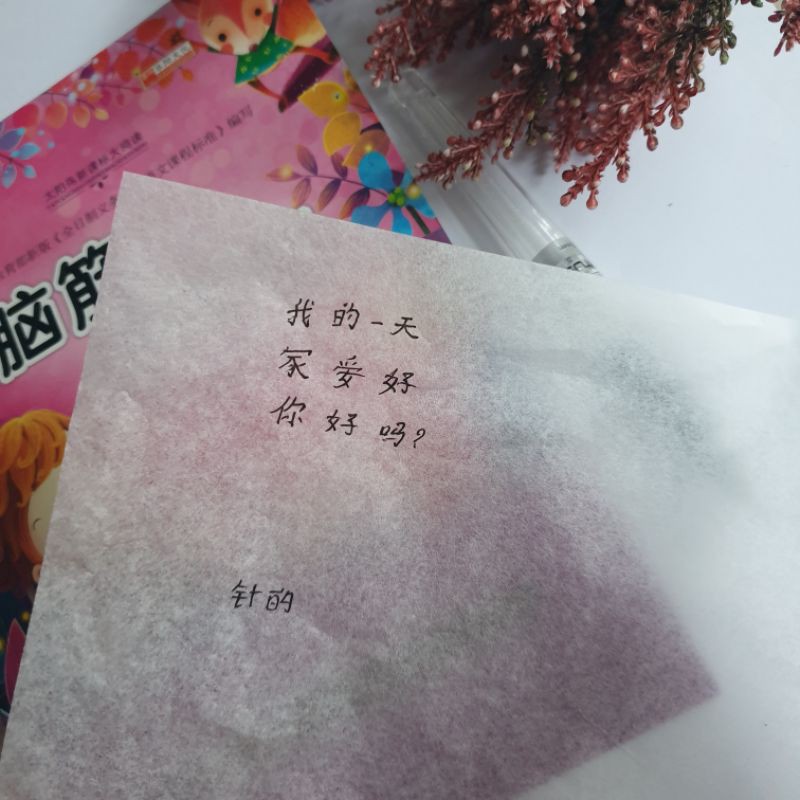 太阳鸟新课标大阅读
教育部新版《全日制义务
文课程标准》编写
脑筋
我的一天
家爱好
你好吗?
针的